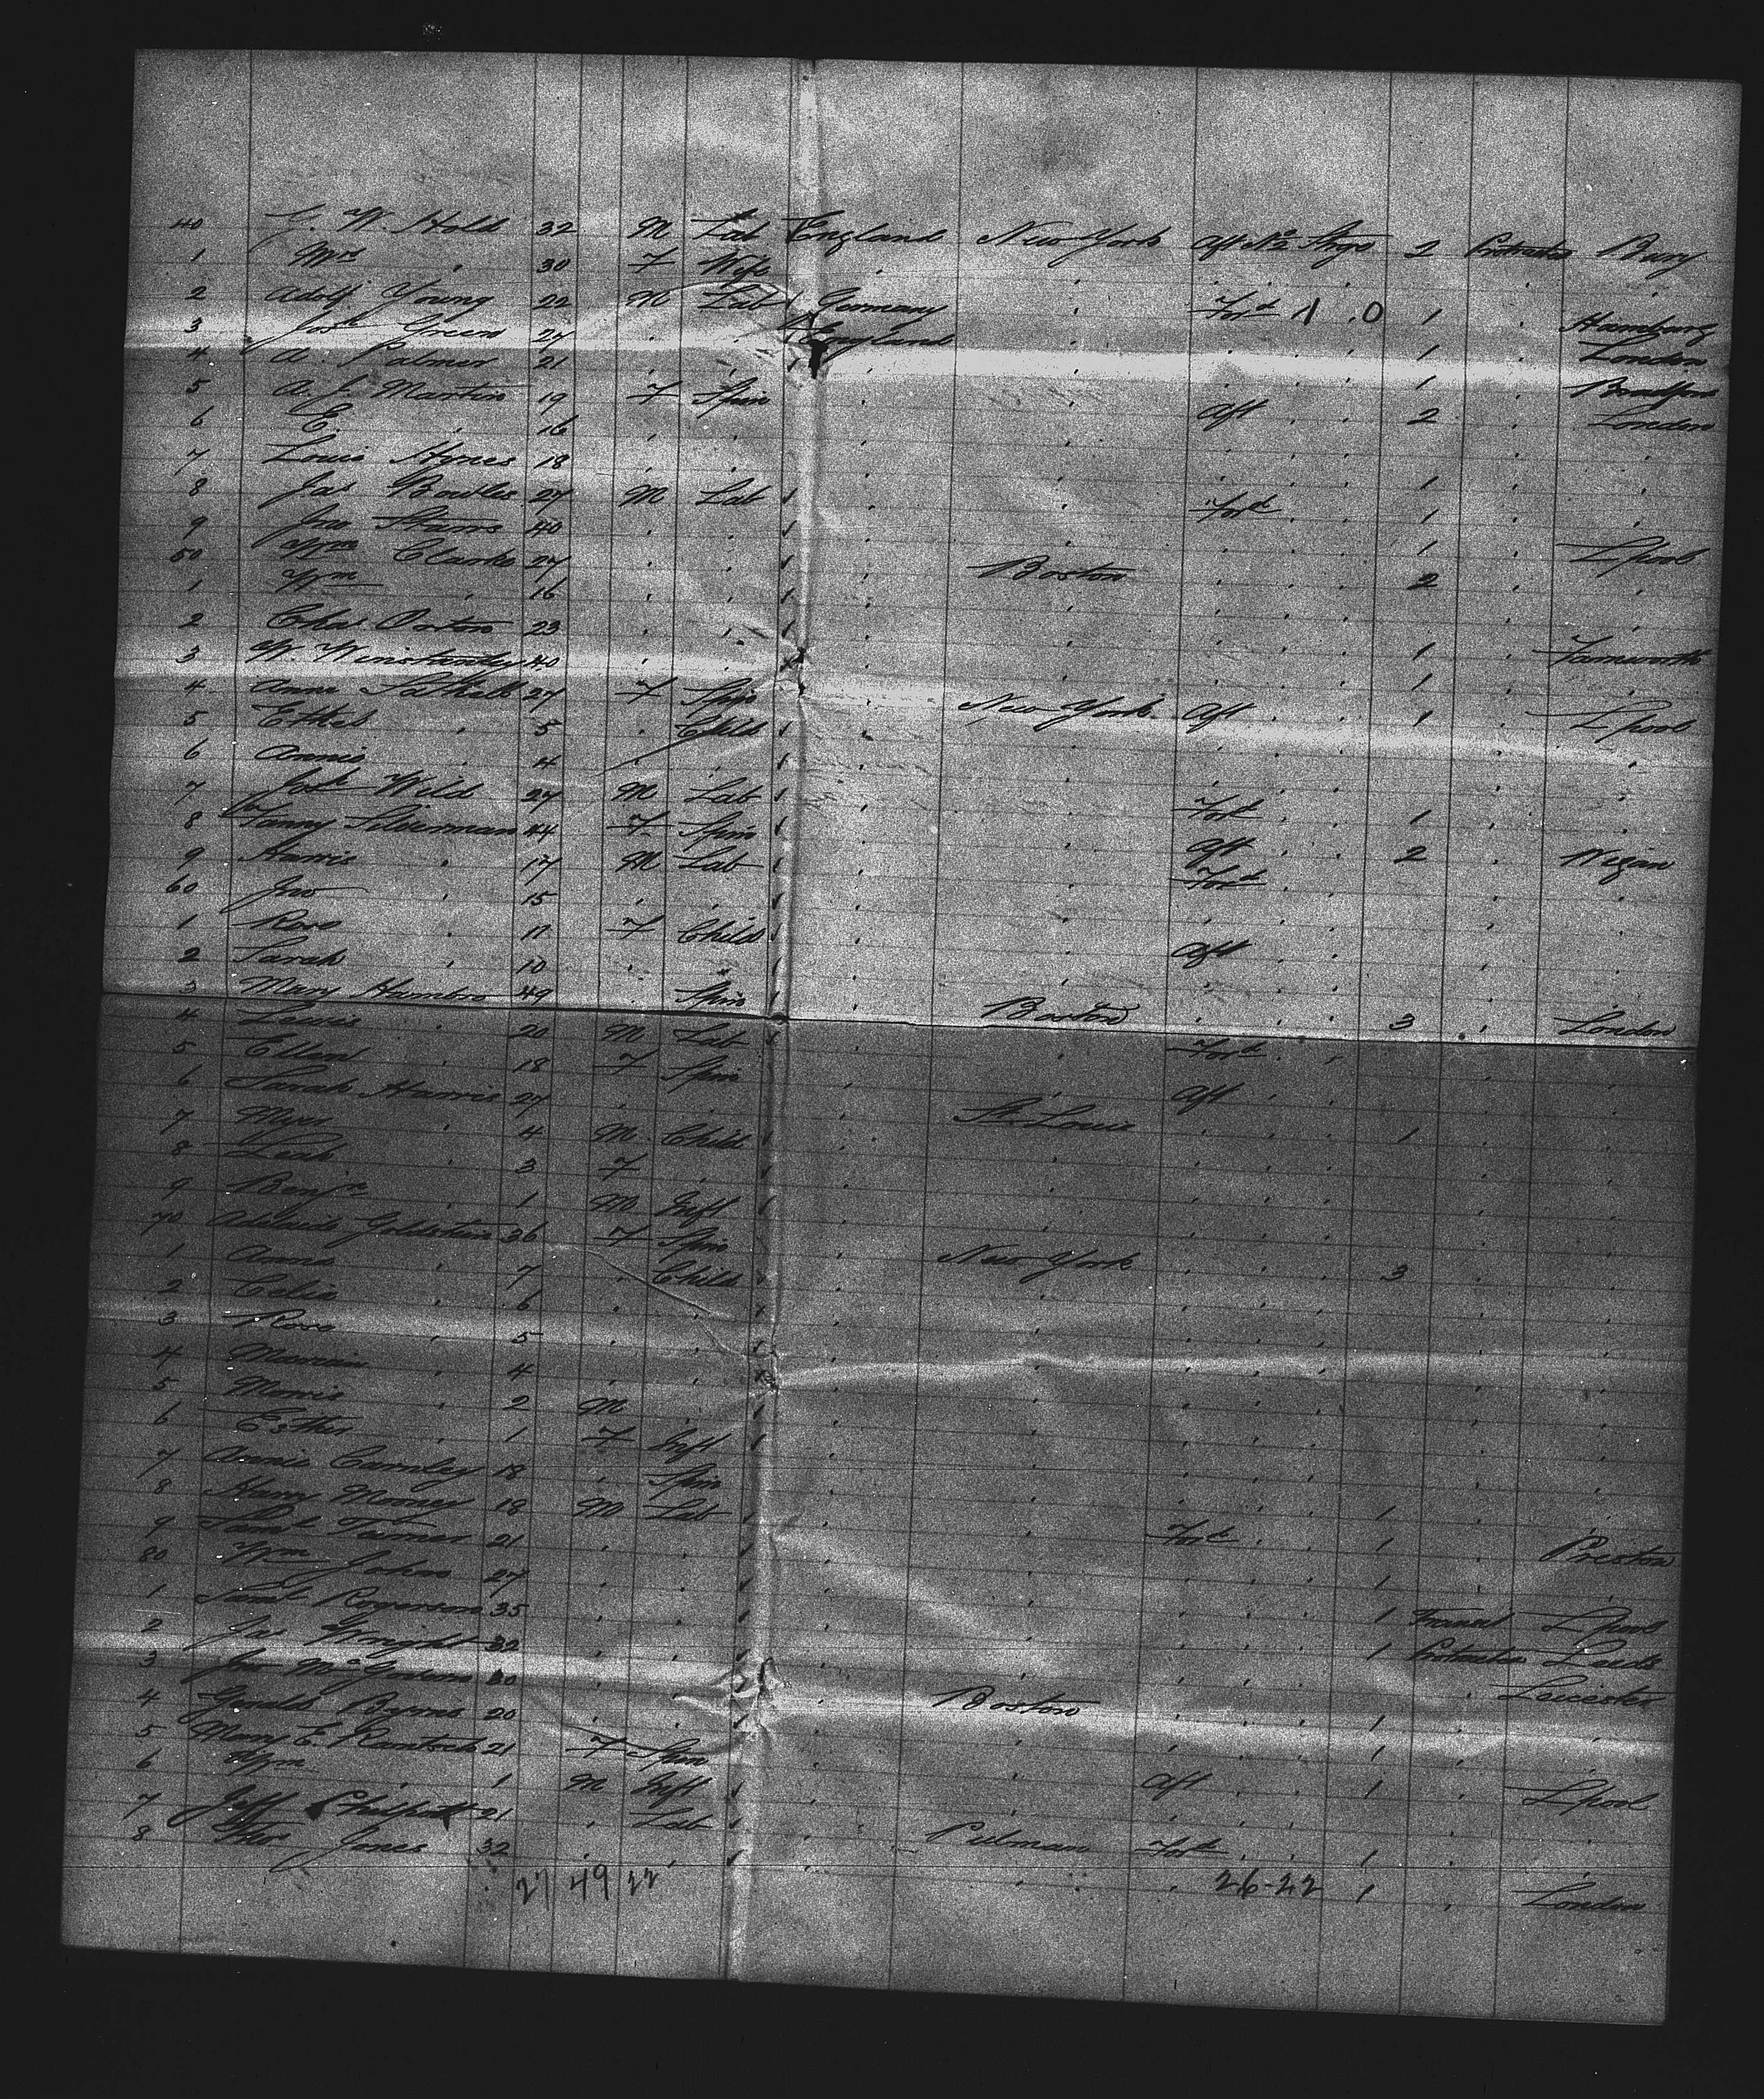 40 G. W. Hold 32 M Lab England New York Aft No 2 Strge 2 Protracted Bury
1 Mrs " 30 F Wife
2 Adolf Young 22 M Lab Germany " Ford 1 . 0 1 " Hamburg
3 Josh Green 24 " " England " 1 " London
4 A. Palmer 21 " " " 1 " Bradford
5 A. J. Martin 19 F Spin " " Aft 2 " London
6 E. " 16 " "
7 Louis Hynes 18 " " 1
8 Jas Bowles 27 M Lab Ford 1
9 Jno Starrs 40 " " 1 " Lpool
50 Wm Clarke 27 " " Boston 2
1 Wm " 16 " "
2 Chas Orton 23 " " 1 Farnworth
3 W. Winstanley 40 " " 1
4 Anne 27 F Spin New York Aft 1 Lpool
5 Ethel " 5 " Child
6 Annie " 4 " "
7 Josh Wild 27 M Lab Ford 1
8 Fanny Silverman 44 F Spin Aft 2 Wigan
9 Harris " 17 M Lab Ford
60 Jno " 15 " "
1 Rose " 11 F Child Aft
2 Sarah " 10 " "
3 Mary Hambro 49 " Spin Boston 3 London
4 Lewis " 20 M Lab Ford
5 Ellen " 18 F Spin Aft
6 Sarah Harris 27 " " St. Louis 1
7 Myer " 4 M Child
8 Leah " 3 F "
9 Benjn " 1 M Inft
70 Adelaide Goldstein 36 F Spin New York 3
1 Anna " 7 " Child
2 Celia " 6 " "
3 Rose " 5 " "
4 " 4 " "
5 Morris " 2 M "
6 Esther " 1 F Inft
7 Annie Carnley 18 " Spin 1
8 Harry Mooney 18 M Lab Ford 1 Preston
9 Saml Turner 21 " " 1
80 Wm John 27 " " 1 Transit Lpool
1 Saml Rogerson 35 " " 1 Protracted Leeds
2 Jas Wright 32 " " Leicester
3 Jno 30 " " Boston 1
4 Gerald Byrne 20 " " 1
5 Mary E. 21 F Spin Aft 1 Lpool
6 Wm " 1 M Inft
7 Jeff 21 " Lab Pulman Ford 1
8 Thos Jones 32 " " 1 London
27 49 22 26-22